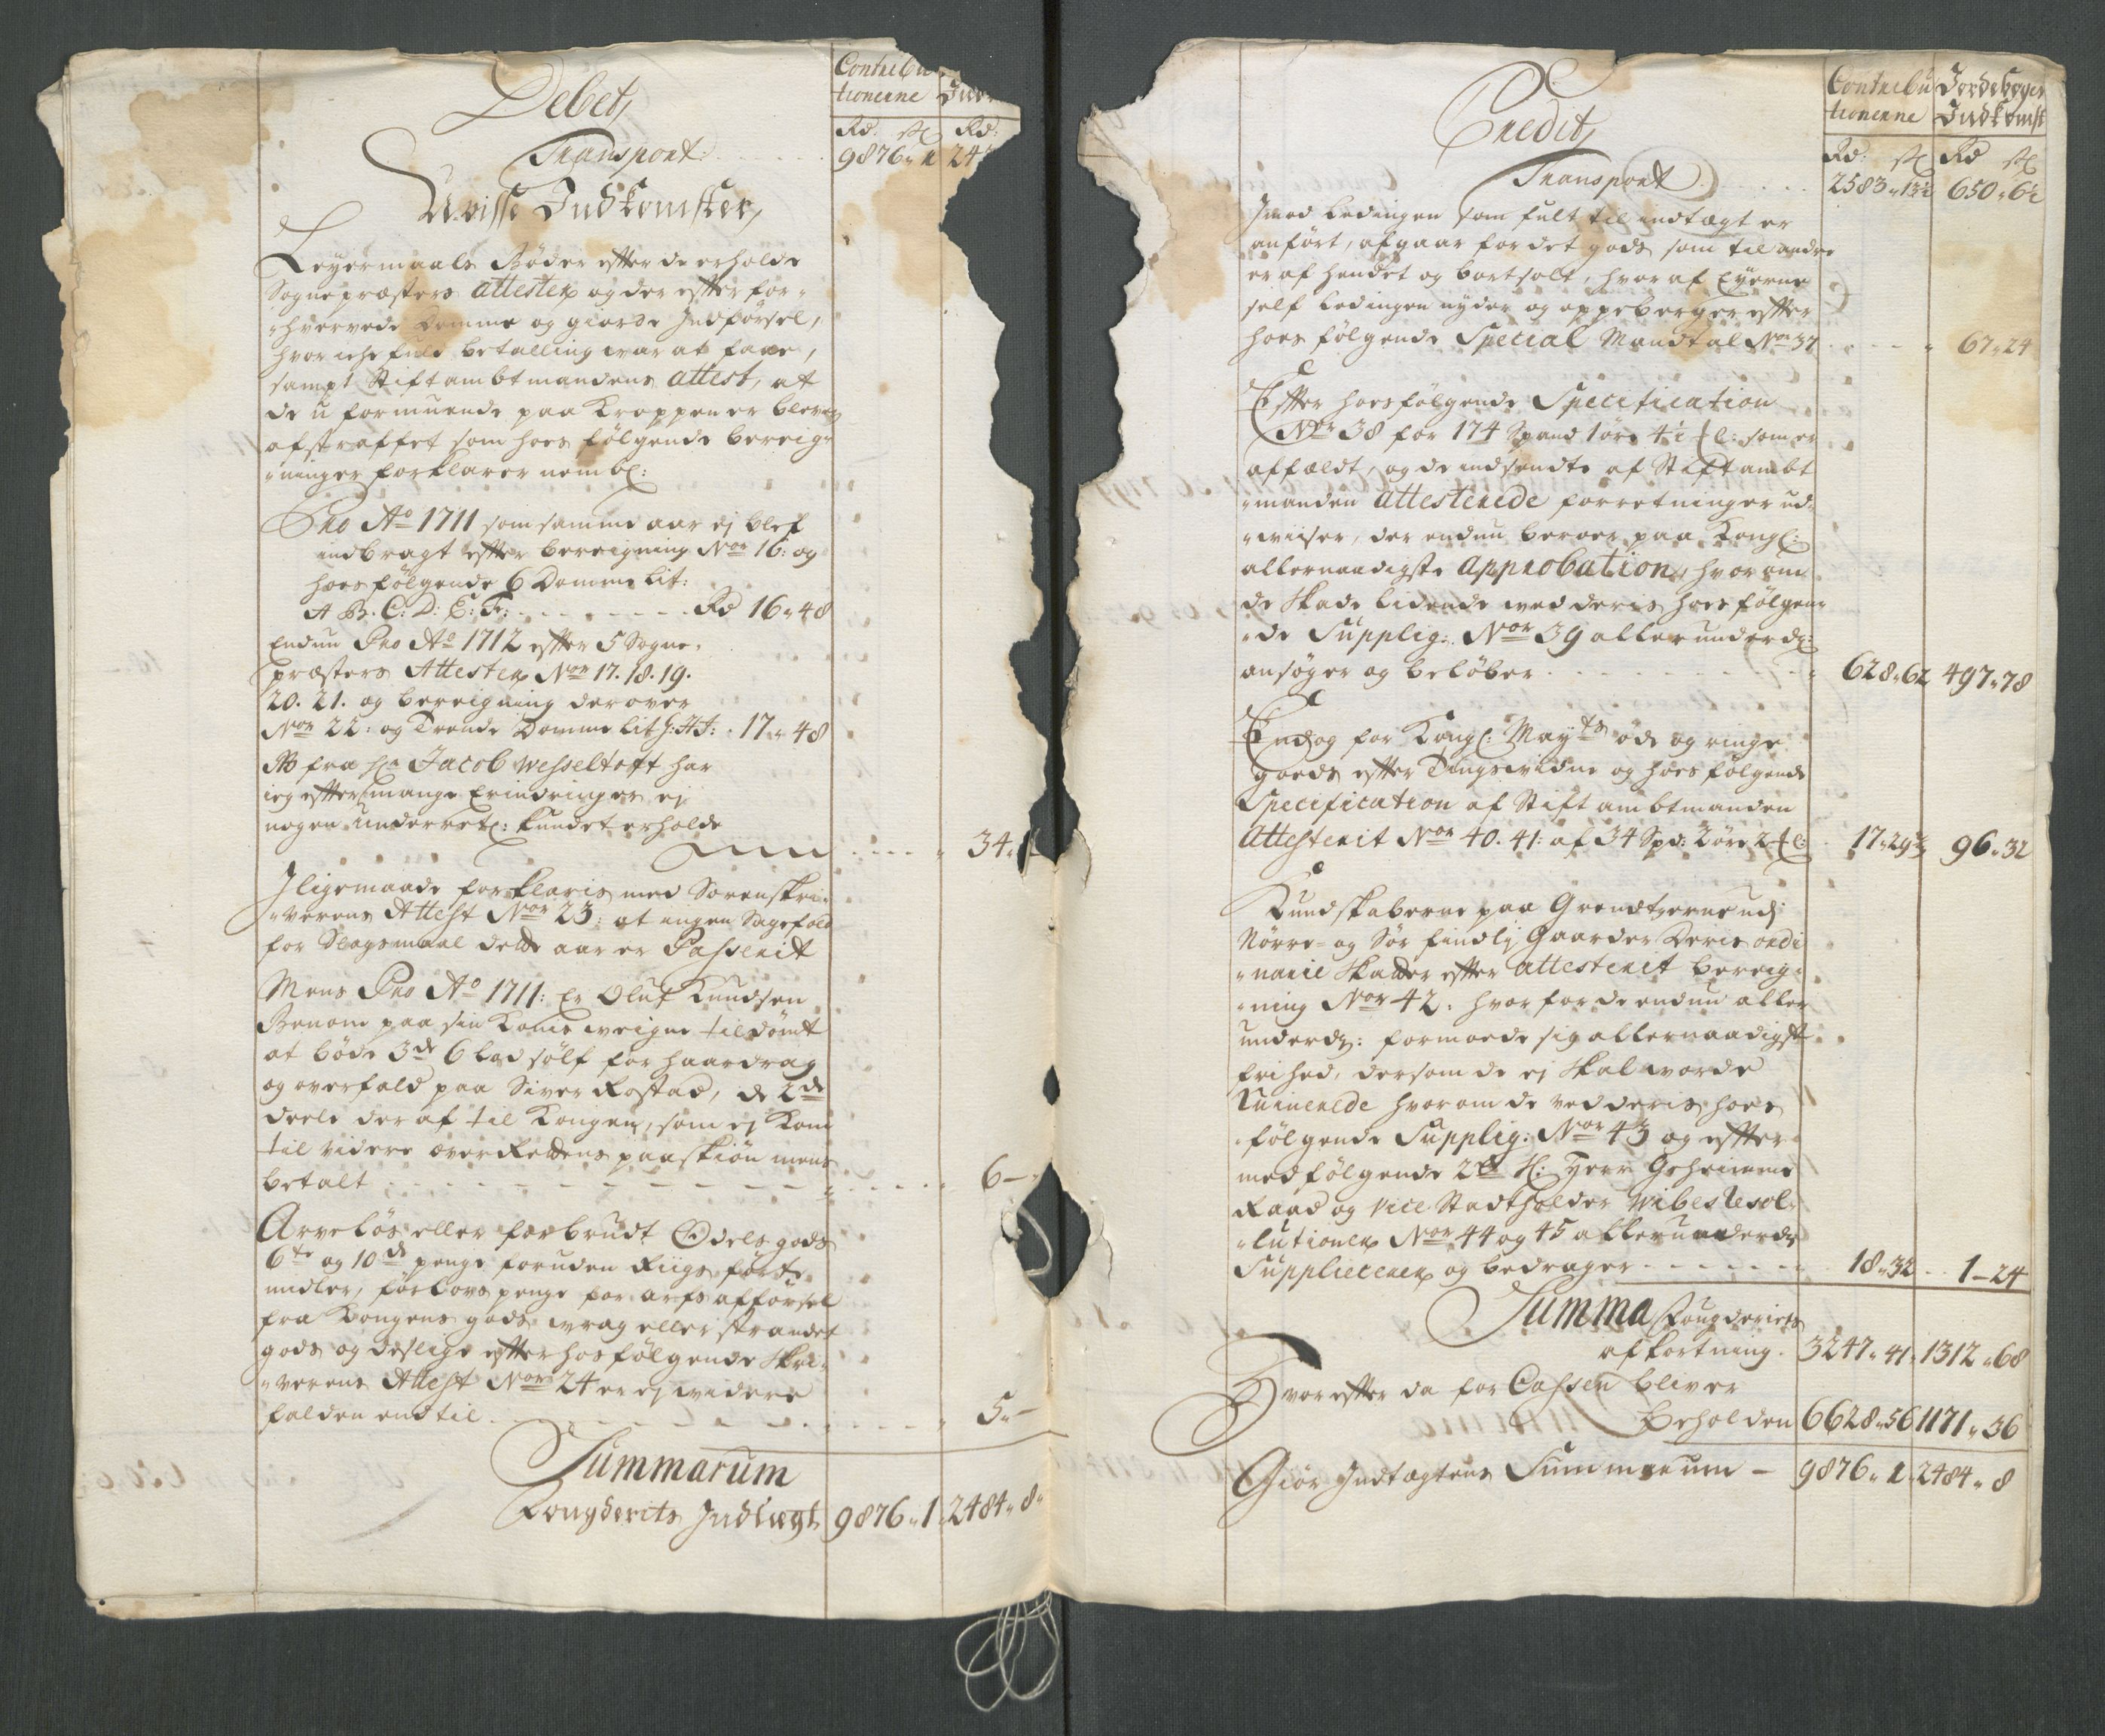 Debet,
Contribu
tionerne
Rd: sk Rd:
Transport: 9876 „ 1 24
Uvisse Indkomster,
Leyermaals Bøder efter de erholde
Sognepræsters attester og der efter for-
„hvervede Domme og giorde Indførsel,
hvor iche fuld betalling war at faae,
sampt Stiftambtmandens attest, at
de u formuende paa Kroppen er bleven
afstraffet som hoes følgende bereig-
„ninger forklarer nembl:
Pro Ao 1711 som samme aar ej blef
indbragt efter bereigning Nor 16: og
hoesfølgende 6 Domme Lit:
A. B. C: D: E: F: Rd 16 „ 48
Endnu Pro Ao 1712 efter 5 Sogne-
præsters Attester Nor 17. 18. 19.
20. 21. og bereigning derover
Nor 22: og Trende Domme Lit G: H J: 17 „ 48
NB fra Hr Jacob Wesseltoft har
ieg efter mange Erindringer ej
nogen underretn: kundet erholde
34 „
Iligemaade forklaris med Sorenskri-
„verens Attest Nor 23: at ingen Sagefald
for Slagsmaal dette aar er Passerit
Mens Pro Ao 1711: Er Oluf Knudsen
paa sin Kones weigne tildømt
at bøde 3de 6 Lod sølf for haardrag
og overfald paa Siver Rostad, de 2de
deele der af til Kongen, som ej kom
til videre paaskiøn mens
betalt 6 –
Arveløs eller forbrudt Odels gods
6te og 10de penge foruden Riigs førte
midler, førlovs penge for arfs afførsel
fra Kongens gods, wrag eller strandet
gods og deslige efter hosfølgende Skri-
„verens Attest Nor 24 er ej widere
falden end til 5 „ –
Summarum
Fougderits Indtægt 9876 „ 1 „ 2484 „ 8 „
Credit,
Contribu Jordebogens
tionerne Indkomst
Rd: sk Rd sk
Transport 2583 „ 13½ 650 „ 6½
Imod Ledingen som fult til indtægt er
anført, afgaar for det gods som til andre
er af hendet og bortsolt, hvor af Eyerne
self Ledingen nyder og oppeberger efter
hoes følgende Special Mandtal Nor 37 „ 67 „ 24
Efter hoesfølgende Specification
Nor 38 for 174 Spand 1 øre 4½ ℔: som er
affældt, og de indsendte af Stiftambt
„manden attesterede forretninger ud-
„wiiser, der endnu beroer paa Kongl:
allernaadigste Approbation, hvorom
de Skade lidende med deris hoes følgen-
„de Supplig: Nor 39 allerunderd:
ansøger og beløber 628 „ 62 497 „ 78
Endog for Kongl: Mayts øde og ringe
goeds efter Tingswidne og hoes følgende
Specification af Stiftambtmanden
Attesterit Nor 40. 41: af 34 Spd: 2 øre 2 ℔: 17 „ 29⅗ 96 „ 32
Kundskaberne paa Grendtzerne udj
Nørre- og Sør findlj Gaarder Deris ordi
„narie Skatter efter attesterit bereig-
„ning Nor 42: hvor for de endnu aller
underd: formoede sig allernaadigst
frihed, dersom de ej Skal worde
Ruinerede hvorom de ved deris hoes
følgende Supplig: Nor 43 og efter
medfølgende 2de H: Herr Geheimme
Raad og Vice Stadtholder Wibes Resol-
„lutioner Nor 44 og 45 allerunderd:
Supplicerer og bedrager 18 „ 32 1 – 24
Summa Fougderiets
afkortning. 3247 „ 41 „ 1312 „ 68
Hvorefter da for Cassen bliver
Beholden 6628 „ 56 1171 „ 36
Giør Indtægtens Summarum – 9876 „ 1 „ 2484 „ 8